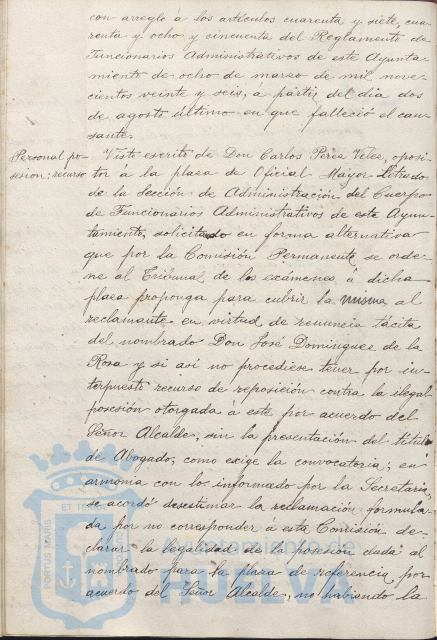 con arreglo á los artículos cuarenta y siete, cua-
renta y ocho y cincuenta del Reglamento de
Funcionarios Administrativos de este Ayunta-
miento de ocho de marzo de mil nove-
cientos veinte y seis, á partir del dia dos
de agosto último en que falleció el cau-
sante.
Personal po-
sesion; recurso
Visto escrito de Don Carlos Pérez Velez, oposi-
tor á la plaza de Oficial Mayor Letrado
de la Sección de Administración del Cuerpo
de Funcionarios Administrativos de este Ayun-
tamiento, solicitando en forma alternativa
que por la Comisión Permanente se orde-
ne al Tribunal de los exámenes á dicha
plaza proponga para cubrir la misma al
reclamante en virtud de renuncia tácita
del nombrado Don José Domínguez de la
Rosa y si asi no procediese tener por in-
terpuesto recurso de reposición contra la ilegal
posesión otorgada á este por acuerdo del
Señor Alcalde, sin la presentación del título
de Abogado, como exige la convocatoria; en
armonia con lo informado por la Secretaria,
se acordó desestimar la reclamación formula-
da por no corresponder á esta Comisión de-
clarar la legalidad de la posesión dada al
nombrado para la plaza de referencia, por
acuerdo del Señor Alcalde, no habiendo la
PORTUS MARIS
ET TERRÆ
Ayuntamiento de
HUELVA